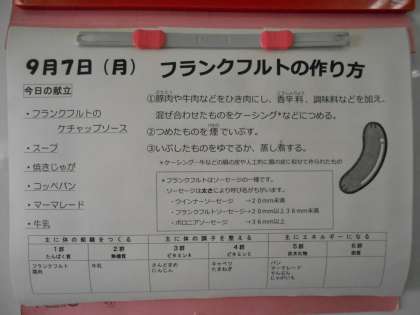 9月7日（月）
フランクフルトの作り方
今日の献立
・フランクフルトの
ケチャップソース
・スープ
・焼きじゃが
・コッペパン
・マーマレード
・牛乳
①豚肉や牛肉などをひき肉にし、香辛料、調味料などを加え、
混ぜ合わせたものをケーシング*などにつめる。
②つめたものを煙でいぶす。
③いぶしたものをゆでるか、蒸し煮する。
*ケーシング…牛などの腸の皮や人工的に腸の皮に似せて作られたもの
*フランクフルトはソーセージの一種です。
ソーセージは太さにより呼び名がちがいます。
・ウインナーソーセージ →20mm未満
・フランクフルトソーセージ→20mm以上36mm未満
・ボロニアソーセージ →36mm以上
主に体の組織をつくる 主に体の調子を整える 主にエネルギーになる
1群 2群 3群 4群 5群 6群
たんぱく質 無機質 ビタミンA ビタミンC 炭水化物 脂質
フランクフルト 牛乳 さんどまめ キャベツ パン
鶏肉 にんじん たまねぎ マーマレード
じゃがいも